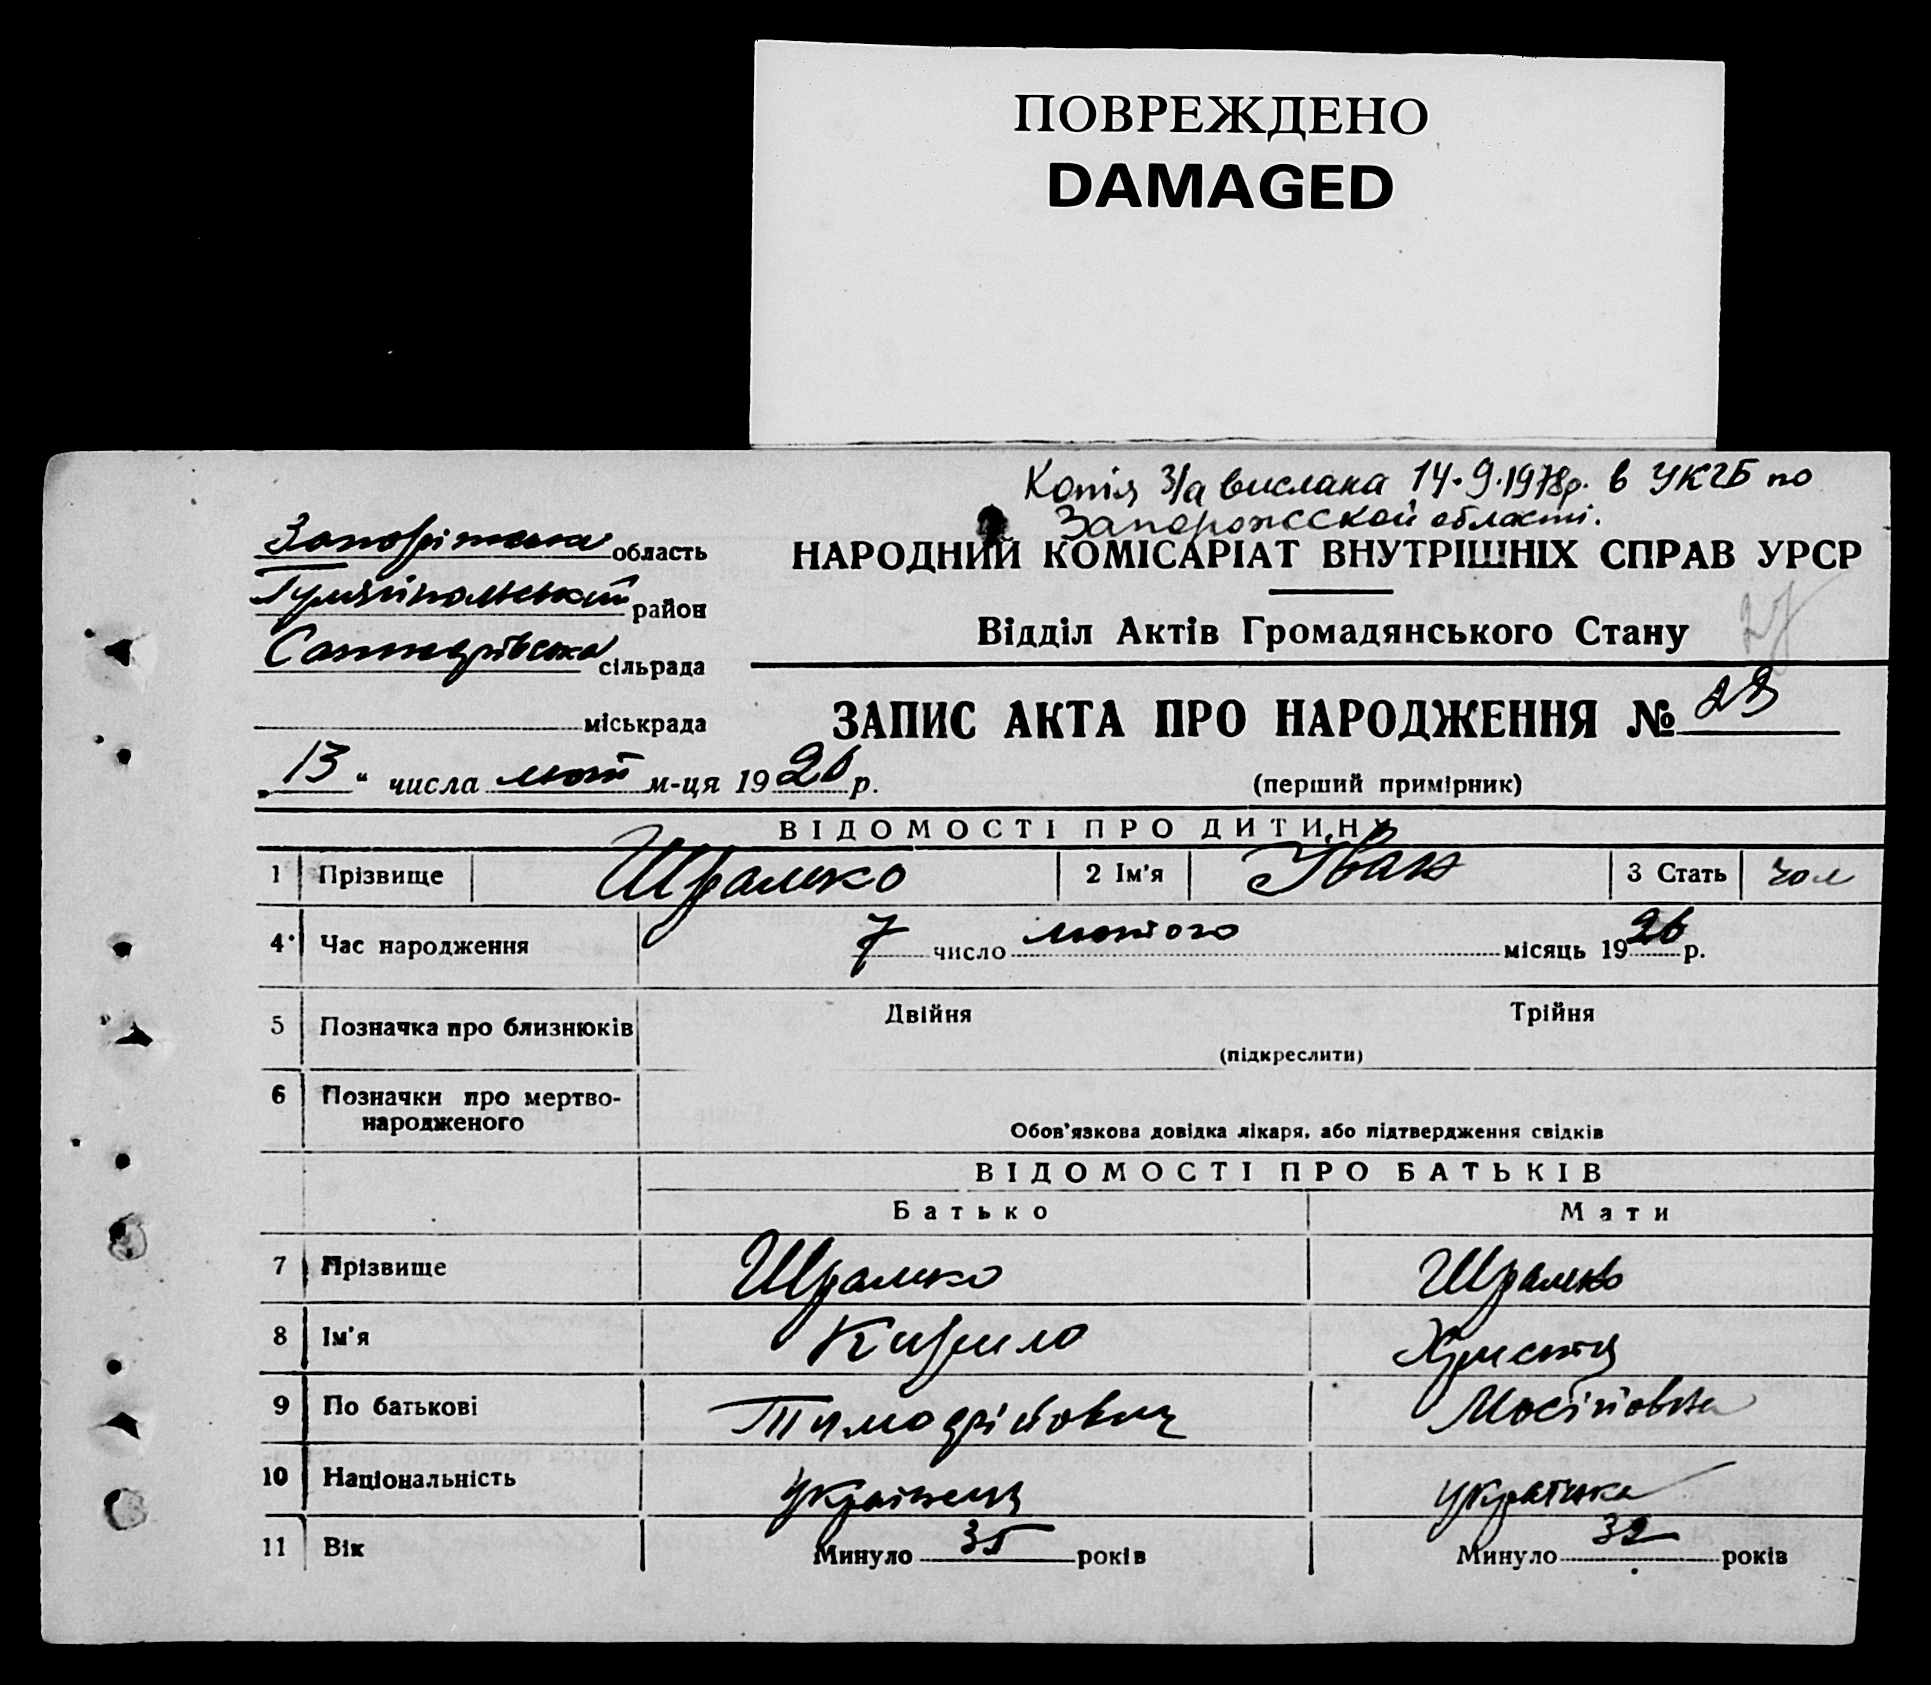 ПОВРЕЖДЕНО
DAMAGED
Копія З/а вислана 14.9.1978р. в УКГБ по
Запорожсской області.
Запорізька область
Гуляйпольський район
сільрада
міськрада
НАРОДНИЙ КОМІСАРІАТ ВНУТРІШНІХ СПРАВ УРСР
Відділ Актів Громадянського Стану
27
ЗАПИС АКТА ПРО НАРОДЖЕННЯ №
(перший примірник)
„13" числа лют м-ця 1926 р.
ВІДОМОСТІ ПРО ДИТИНУ
1 Прізвище Шрамко 2 Ім'я Іван 3 Стать чол
4 Час народження 7 число лютого місяць 1926 р.
5 Позначка про близнюків Двійня Трійня
(підкреслити)
6 Позначки про мертво-
народженого
Обов'язкова довідка лікаря, або підтвердження свідків
ВІДОМОСТІ ПРО БАТЬКІВ
Батько Мати
7 Прізвище Шрамко Шрамко
8 Ім'я Кирило Христя
9 По батькові Мосійовна
10 Національність українець українка
11 Вік Минуло 35 років Минуло 32 років